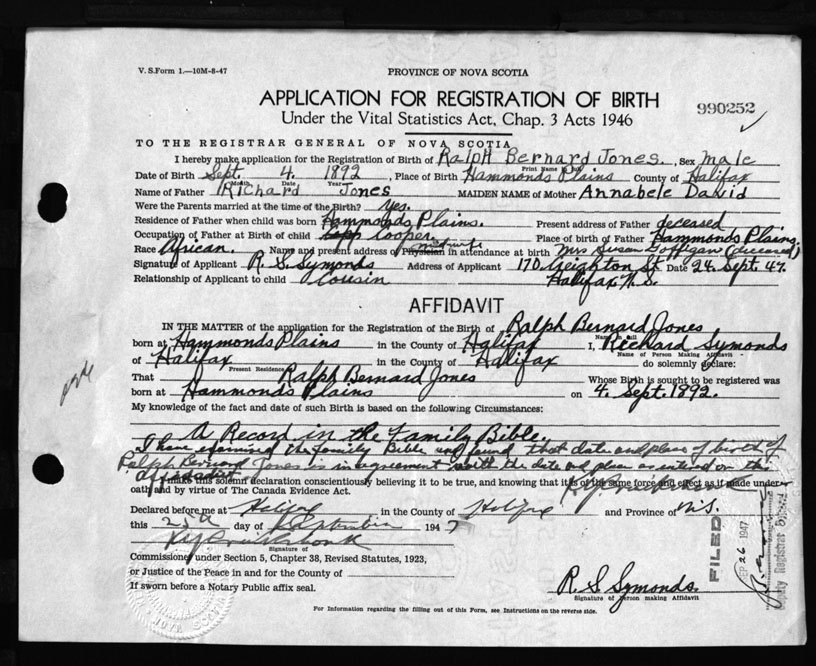 V. S. Form 1.—10M-8-47
PROVINCE OF NOVA SCOTIA
APPLICATION FOR REGISTRATION OF BIRTH
Under the Vital Statistics Act, Chap. 3 Acts 1946
990252
TO THE REGISTRAR GENERAL OF NOVA SCOTIA
I hereby make application for the Registration of Birth of Ralph Bernard Jones., Sex male
Print Name in Full
Date of Birth Sept. 4. 1892, Place of Birth Hammonds Plains County of Halifax
Month Date Year
Name of Father Richard Jones MAIDEN NAME of Mother Annabele David
Were the Parents married at the time of the Birth? yes.
Residence of Father when child was born Hammonds Plains. Present address of Father deceased
Occupation of Father at Birth of child Cooper. Place of birth of Father Hammonds Plains.
Race African. Name and present address of Physician midwife in attendance at birth Mrs Susan (deceased)
Signature of Applicant R. S. Symonds Address of Applicant 170 Creighton St. Date 24. Sept. 47.
Relationship of Applicant to child Cousin Halifax N.S.
AFFIDAVIT
IN THE MATTER of the application for the Registration of the Birth of Ralph Bernard Jones
Name in full
born at Hammonds Plains in the County of Halifax I, Richard Symonds
Name of Person Making Affidavit
of Halifax in the County of Halifax do solemnly declare:
Present Residence
That Ralph Bernard Jones Whose Birth is sought to be registered was
born at Hammonds Plains on 4. Sept. 1892.
My knowledge of the fact and date of such Birth is based on the following Circumstances:
A Record in the Family Bible.
I have examined the Family Bible and found that date and place of birth of
Ralph Bernard Jones is in agreement with the date and place as entered on this
affidavit
I make this solemn declaration conscientiously believing it to be true, and knowing that it is of the same force and effect as if made under
oath and by virtue of The Canada Evidence Act.
Declared before me at Halifax in the County of Halifax and Province of N.S.
this day of September 1947
Signature of
Commissioner under Section 5, Chapter 38, Revised Statutes, 1923,
or Justice of the Peace in and for the County of
If sworn before a Notary Public affix seal.
R. S. Symonds.
Signature of Person making Affidavit
For Information regarding the filling out of this Form, see Instructions on the reverse side.
FILED
SEP 26 1947
Deputy Registrar General
NOVA SCOTIA